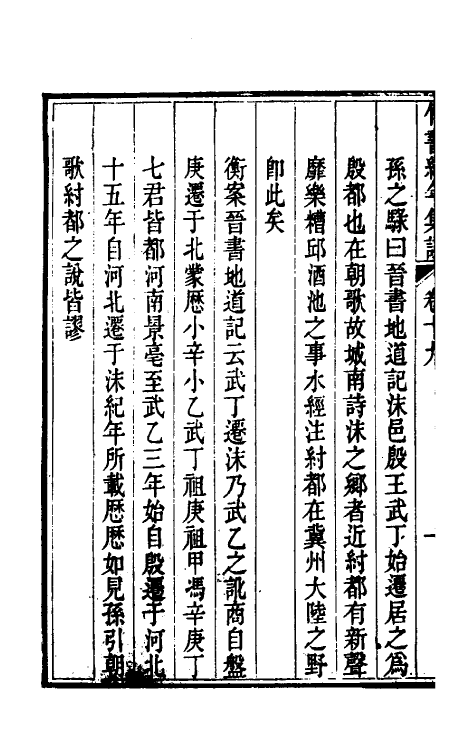 竹書紀年集證 卷十九 一
孫之騄曰晉書地道記沫邑殷王武丁始遷居之爲
殷都也在朝歌故城南詩沫之鄉者近紂都有新聲
靡樂糟邱酒池之事水經注紂都在冀州大陸之野
卽此矣
衡案晉書地道記云武丁遷沫乃武乙之訛商自盤
庚遷于北蒙歷小辛小乙武丁祖庚祖甲馮辛庚丁
七君皆都河南景亳至武乙三年始自殷遷于河北
十五年自河北遷于沫紀年所載歷歷如見孫引朝
歌紂都之說皆謬